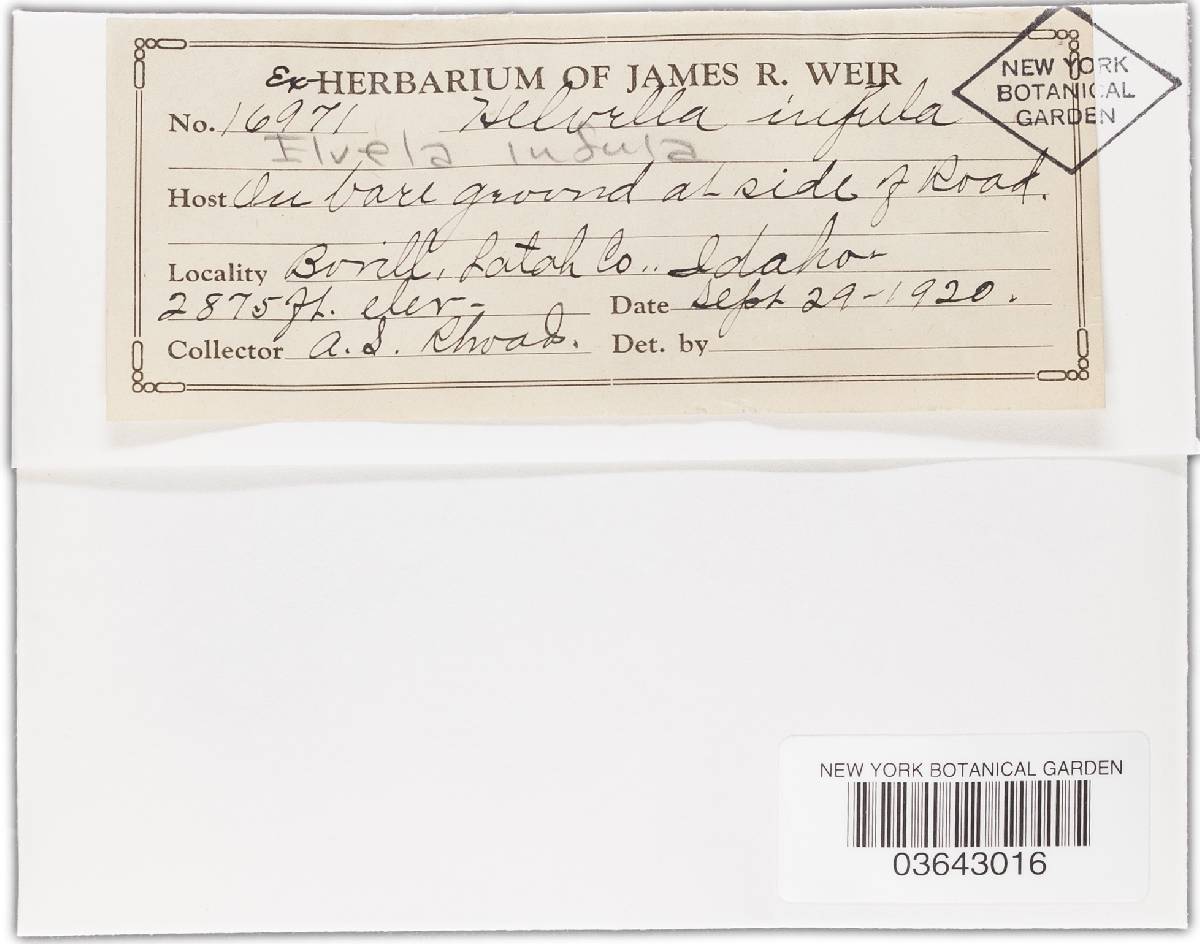 Ex-HERBARIUM OF JAMES R. WEIR
NEW YORK
BOTANICAL
GARDEN
No. 16971 Helvella infula
Elvela Infula
Host On bare ground at side of Road.
Locality Bovill, Latah Co., Idaho-
2875 ft. elev- Date Sept 29-1920.
Collector A.S. Rhoads. Det. by
NEW YORK BOTANICAL GARDEN
03643016